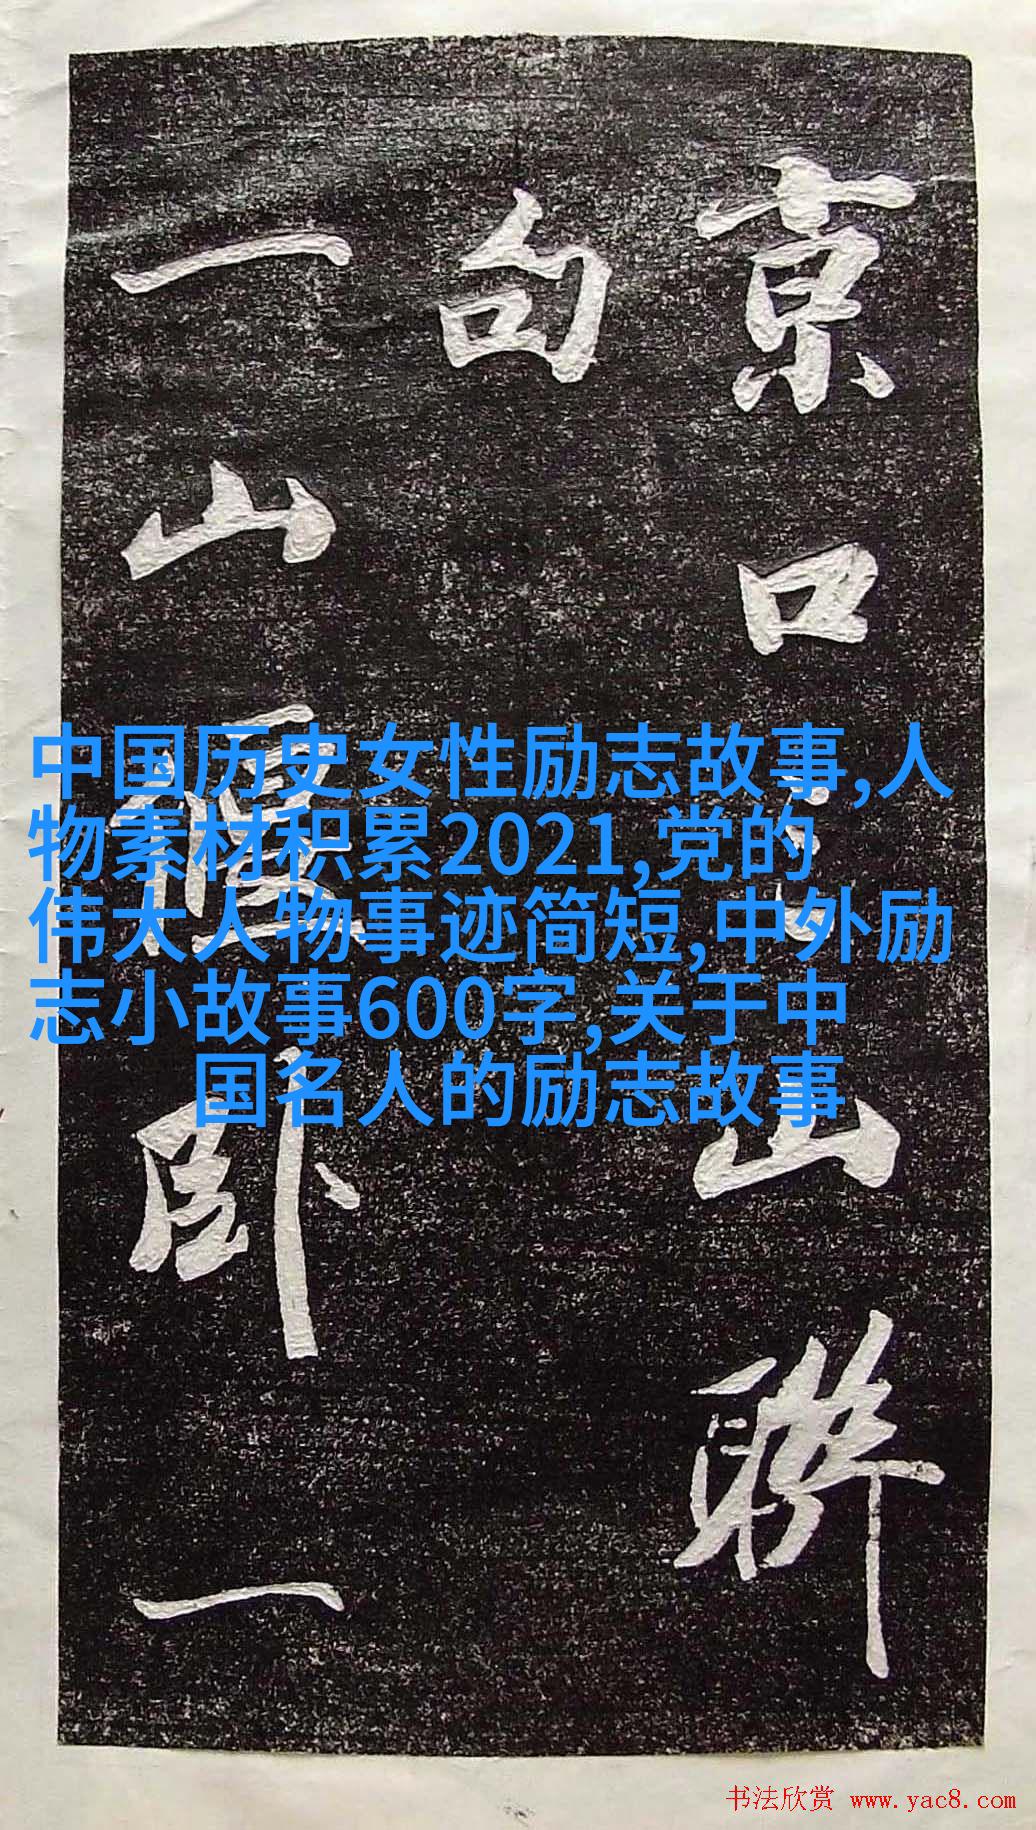 京口山聯
句
一山偃卧一
中国历史女性励志故事,人
物素材积累2021,党的
伟大人物事迹简短,中外励
志小故事600字,关于中
国名人的励志故事
书法欣赏 www.yac8.com